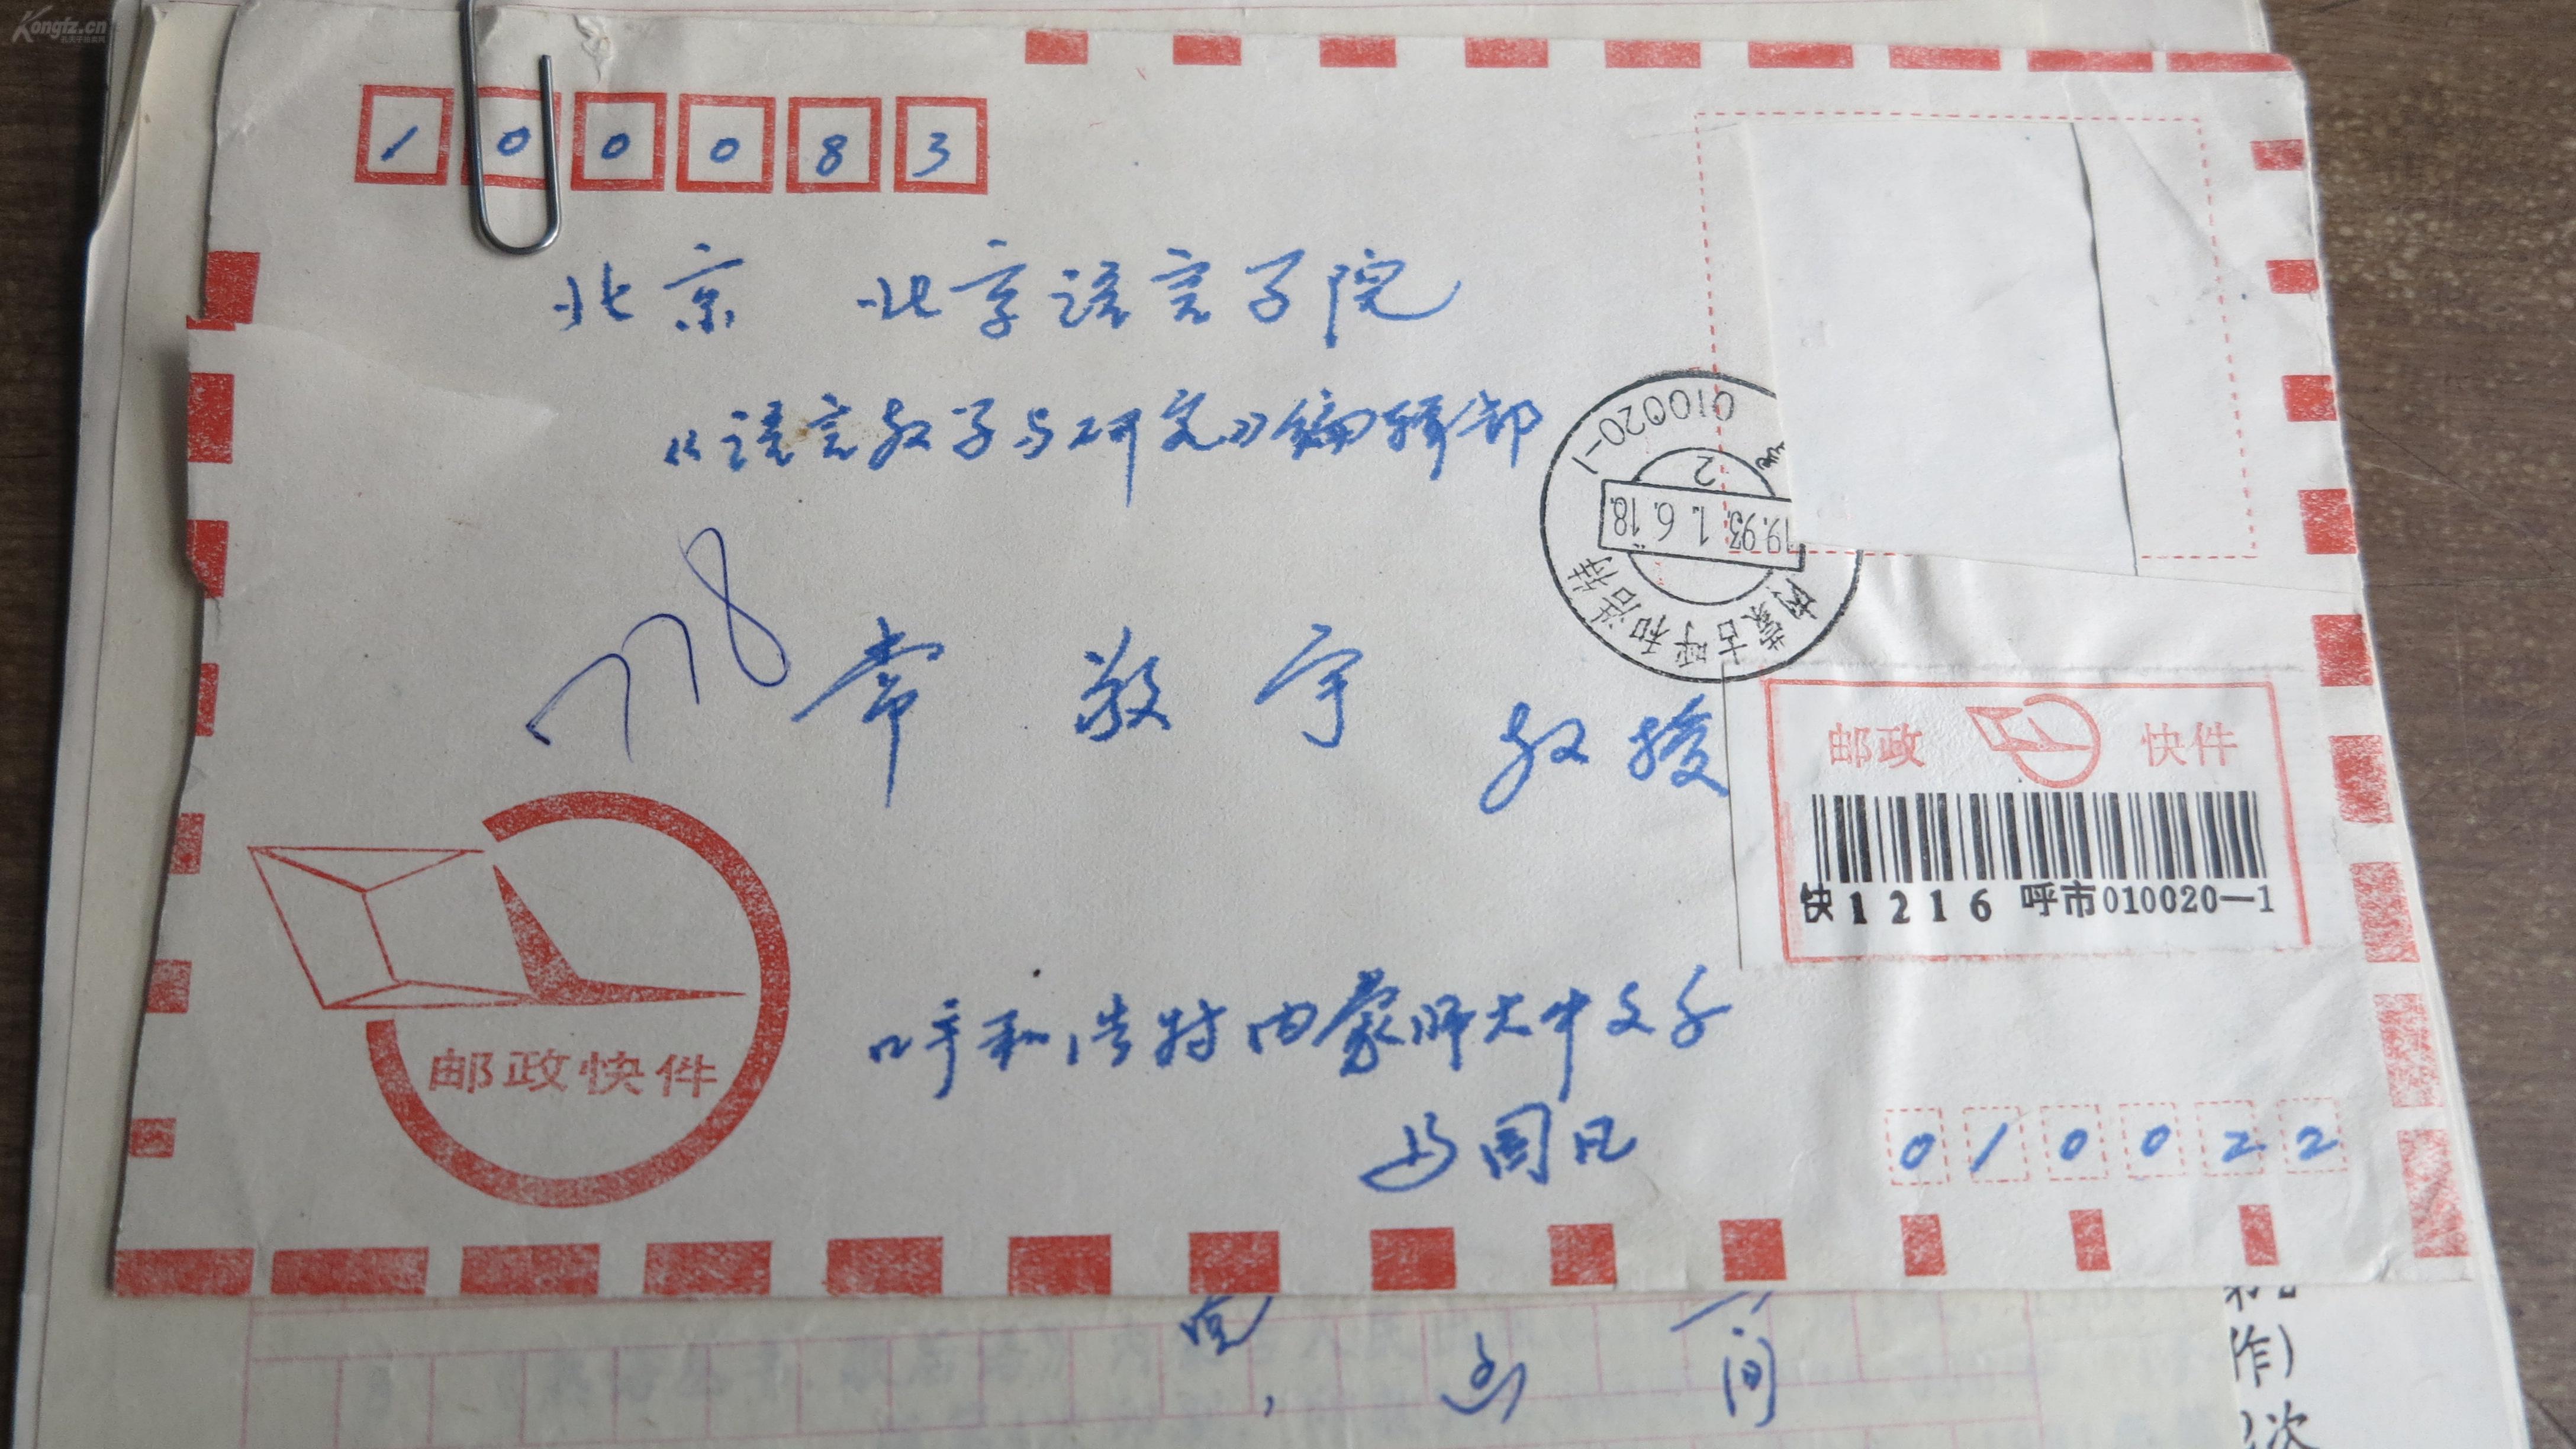 Kongfz.cn
100083
北京 北京语言学院
《语言教学与研究》编辑部
778
常敬宇 教授
010020-1
2
19.93.1.6.18.
内蒙古呼和浩特
邮政 快件
快1216 呼市010020—1
邮政快件
呼和浩特内蒙师大中文系
马国凡
010022
作)
次